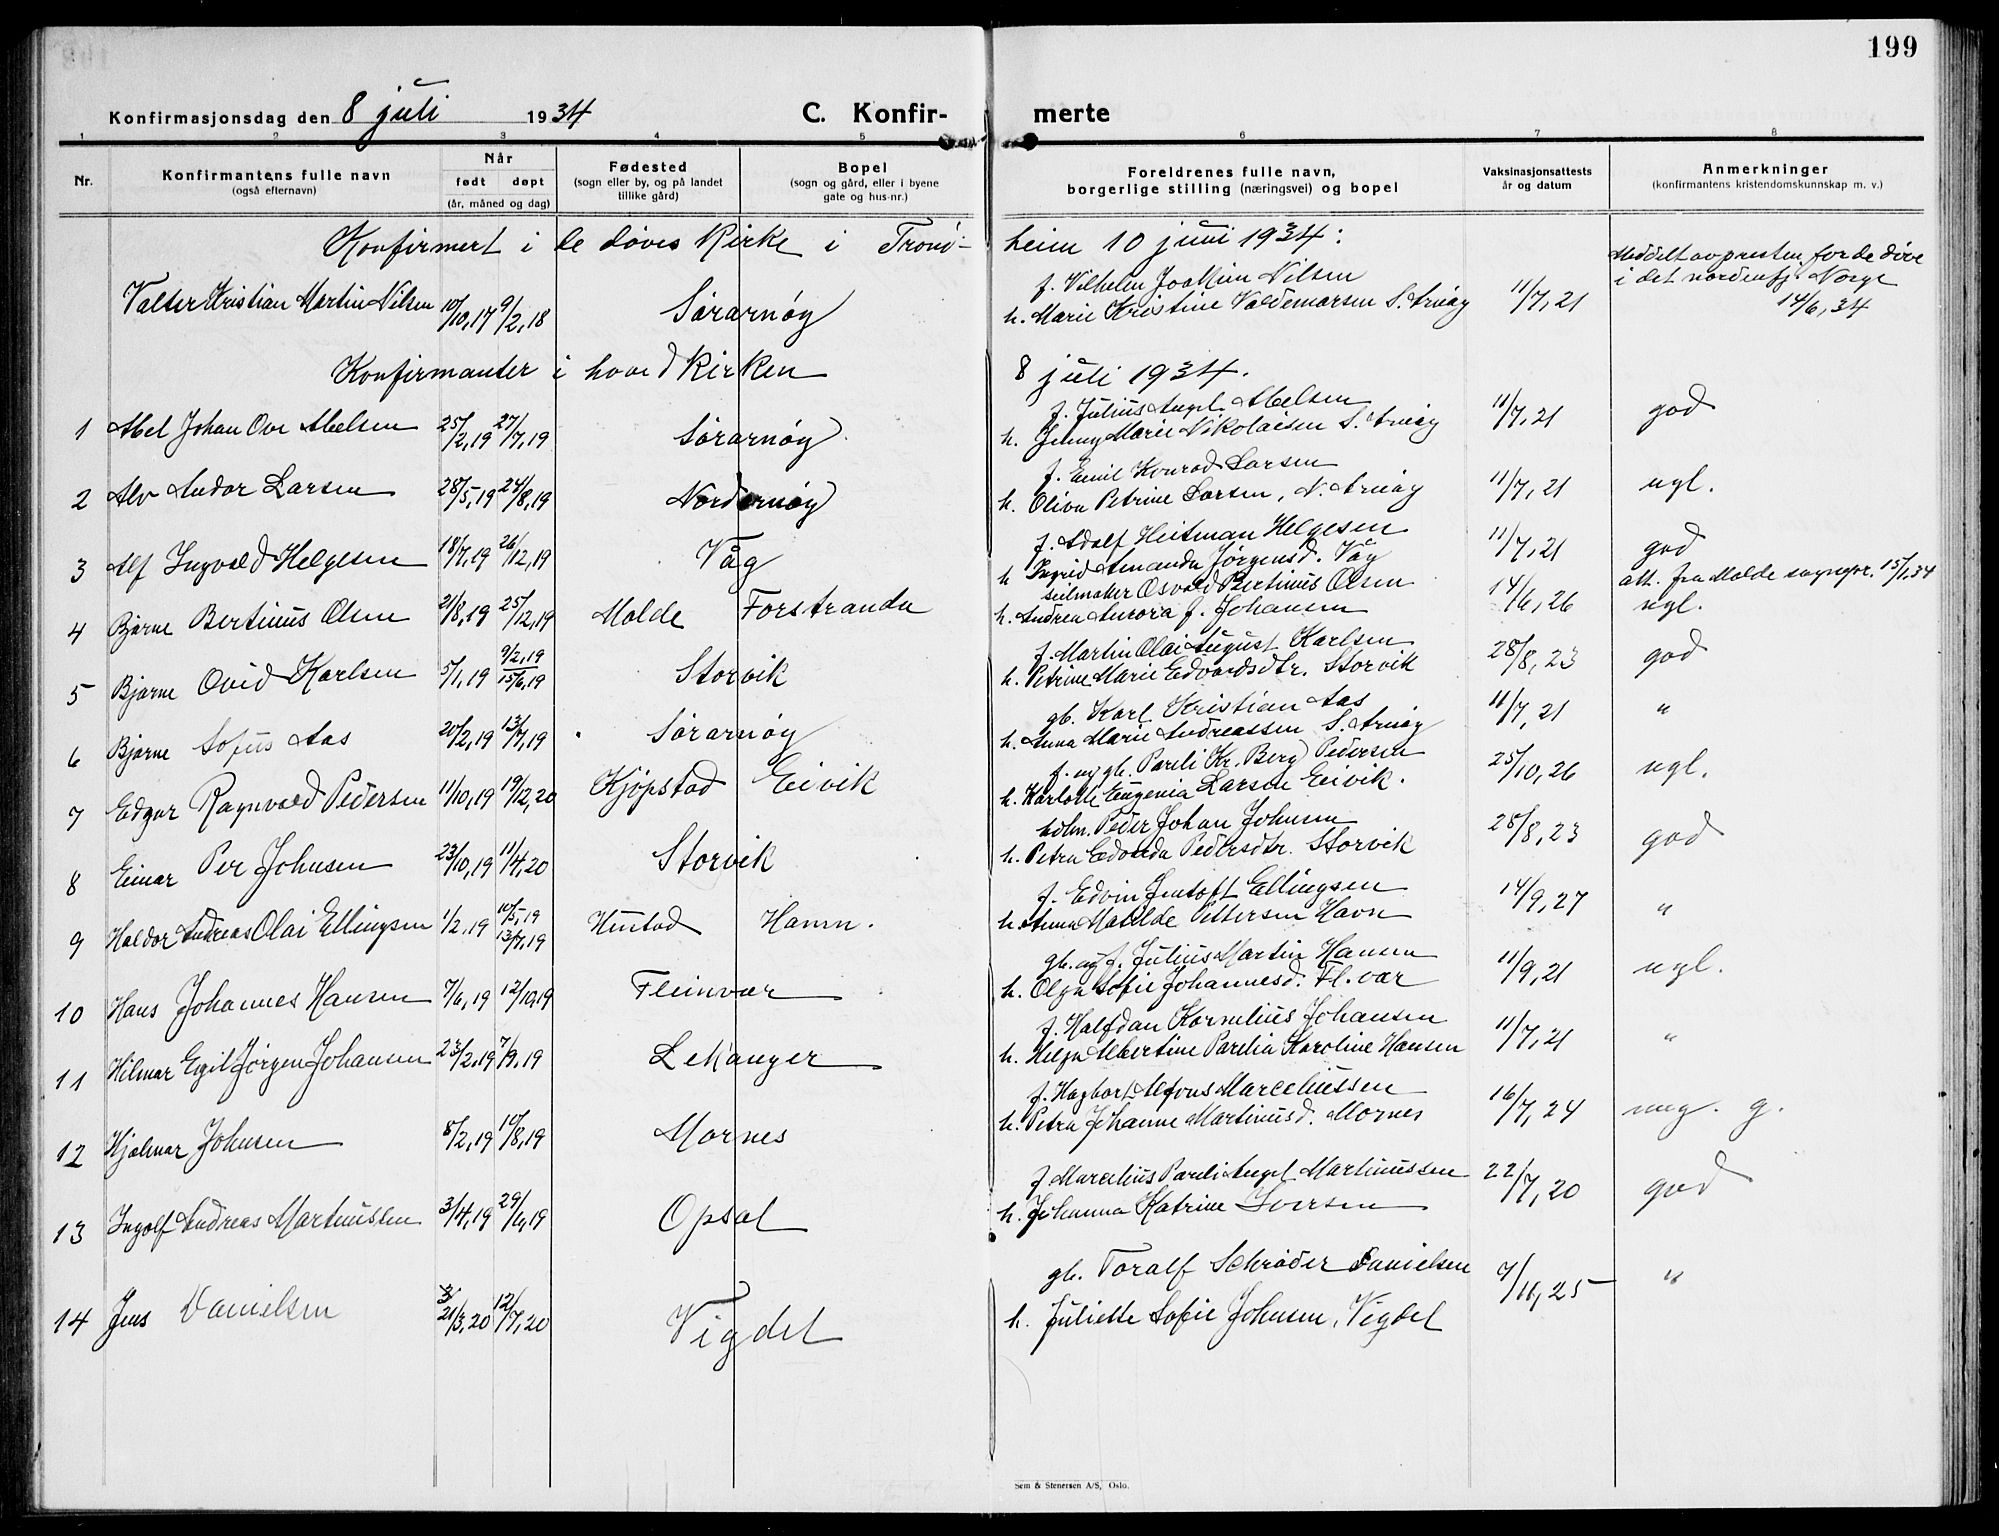 199
Konfirmasjonsdag den 8 juli 1934 C. Konfir- merte
1 2 3 4 5 6 7 8
Nr. Konfirmantens fulle navn (også efternavn) Når født døpt (år, måned og dag) Fødested (sogn eller by, og på landet tillike gård) Bopel (sogn og gård, eller i byene gate og hus-nr.) Foreldrenes fulle navn, borgerlige stilling (næringsvei) og bopel Vaksinasjonsattests år og datum Anmerkninger (konfirmantens kristendomskunnskap m. v.)
Konfirmert i de døves Kirke i Trond- heim 10 juni 1934:
Meddelt av presten for de døve
i det nordenfj. Norge
14/6, 34
Valter Kristian Martin Nilsen 10/10,17 9/2,18 Sørarnøy f. Vilhelm Joakim Nilsen 11/7,21
h. Marie Kristine Valdemarsen S. Arnøy
Konfirmanter i hovedkirken 8 juli 1934.
1 Abel Johan Ove Abelsen 25/2,19 27/7,19 Sørarnøy f. Julius Angel Abelsen 11/7,21 god
h. Jenny Marie Nikolaisen S. Arnøy
2 Alv Andor Larsen 28/5,19 24/8,19 Nordarnøy f. Emil Konrad Larsen 11/7,21 ugl.
h. Oliva Petrine Larsen, N. Arnøy
3 Alf Ingvald Helgesen 18/7,19 26/12,19 Våg f. Adolf Heitman Helgesen 11/7,21 god
h Ingrid Amanda Jørgensd. Våg
4 Bjarne Bertinus Olsen 21/8,19 25/12,19 Molde Forstranda seilmaker Osvald Bertinus Olsen 14/6,26 att. fra Molde sognepr. 15/1.34
h. Andrea Aurora f. Johansen ugl.
5 Bjarne Ovid Karlsen 5/1,19 9/2,19 15/6,19 Storvik f. Martin Olai August Karlsen 28/8,23 god
h. Petrine Marie Edvardsdtr. Storvik
6 Bjarne Sofus Aas 20/2,19 13/7,19 Sørarnøy gb. Karl Kristian Aas 11/7,21 "
h. Anna Marie Andreassen S. Arnøy
7 Edgar Ragnvald Pedersen 11/10,19 19/12,20 Kjøpstad Eivik f. og gb. Pareli Kr. Berg Pedersen 25/10,26 ugl.
h. Karlotte Eugenia Larsen Eivik.
8 Einar Per Johnsen 23/10,19 11/4,20 Storvik Peder Johan Johnsen 28/8,23 god
h. Petra Edvarda Pedersdtr. Storvik
9 Haldor Andreas Olai Ellingsen 1/2,19 10/5,19 13/7,19 Hustad Hamn. f. Edvin Jentoft Ellingsen 14/9,27 "
h. Anna Matilde Pettersen Havn
10 Hans Johannes Hansen 7/6,19 12/10,19 Fleinvær gb. og f. Julius Martin Hansen 11/9,21 ugl.
h. Olga Sofie Johannesd. Fl. vær
11 Hilmar Egil Jørgen Johansen 23/2,19 7/9,19 Lekanger f. Halfdan Kornelius Johansen 11/7,21 "
h. Helga Albertine Parelia Karoline Hansen
12 Hjalmar Johnsen 8/2,19 10/8,19 Mornes f. Hagbart Alfons Marceliussen 16/7,24 meg. g.
h. Petra Johanne Martinusd. Mornes
13 Ingolf Andreas Martinussen 3/4,19 29/6,19 Opsal f Marcelius Pareli Angel Martinussen 22/7,20 god
h. Johanna Katrine Iversen
14 Jens Danielsen 21/3,20 12/7,20 Vigdel gb. Toralf Schrøder Danielsen 9/11,25 "
h. Juliette Sofie Johnsen, Vigdel
Sem & Stenersen A/S, Oslo.